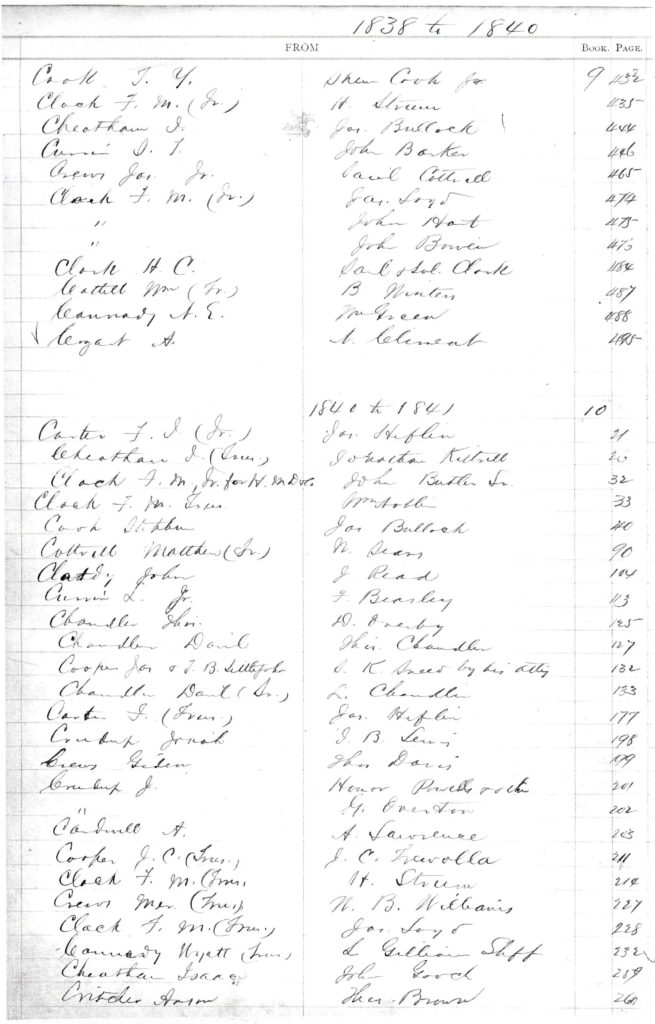 1838 to 1840
FROM BOOK. PAGE.
Cook T. Y. Shem Cook Jr. 9 432
Clack F. M. (Tr.) H. Strum 435
Cheatham I. Jas. Bullock 444
Currin D. T. John Barker 446
Crews Jas. Jr. Saml Cottrell 465
Clack F. M. (Tr.) Jas. Loyd 474
" John Hart 475
" John Bowen 475
Clark H C. Saml & Sol. Clark 484
Cattell Wm (Tr.) B Winters 487
Cannady N. E. Wm Green 488
Cozart A. N. Clement 495
1840 to 1841 10
Carter F. I (Tr.) Jas. Heflin 21
Cheatham I. (Trus.) Jonathan Kittrell 20
Clack F. M, Tr. for H. M Doc. John Butler Sr. 32
Clack F. M. Trus. Wm 33
Cook Stephen Jas Bullock 40
Cottrell Matthew (Tr.) N. Sears 90
Claddy John J Read 104
Currin L. Jr. F Beasley 113
Chandler Thos. D. Overby 125
Chandler Danl Thos. Chandler 127
Cooper Jas & T. B. Littlejohn S. K. Sneed by his atty 132
Chandler Danl (Sr.) L. Chandler 133
Carter F. (Trus.) Jas. Heflin 177
Crudup Josiah I. B. Lewis 198
Crews Gideon Thos Davis 199
Crudup J. Honor Powells & oth 201
" G. Overton 202
Cardwell A. A. Lawrence 203
Cooper J. C. (Trus.) J. C. Trevolla 211
Clack F. M. (Trus. H. Strum 214
Crews Mer. (Trus.) W. B. Williams 227
Clack F. M. (Trus.) Jas. Loyd 228
Cannady Wyatt (Trus) L Gilliam Shff 232
Cheatham Isaac John Gooch 259
Critcher Anson Thos. Brown 260